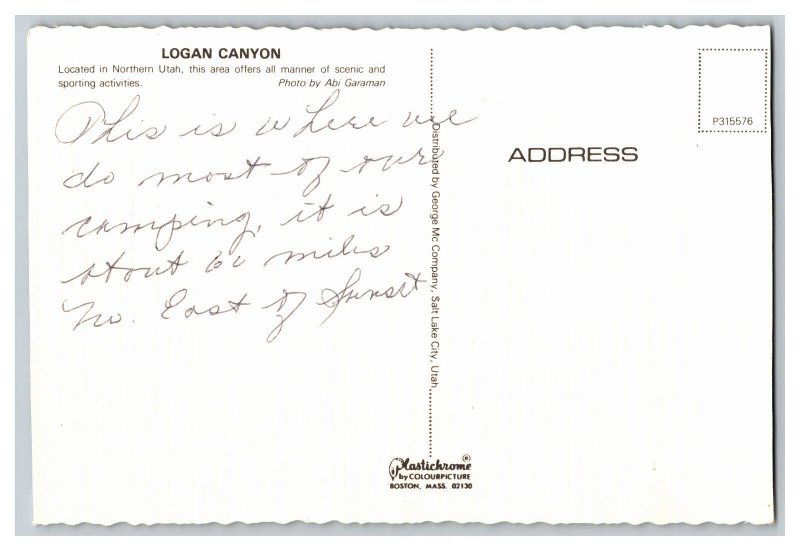 LOGAN CANYON
Located in Northern Utah, this area offers all manner of scenic and
sporting activities. Photo by Abi Garaman
This is where we
do most of our
camping, it is
about 60 miles
No. East of Sunset
Distributed by George Mc Company, Salt Lake City, Utah
P315576
ADDRESS
Plastichrome ®
by COLOURPICTURE
BOSTON, MASS. 02130